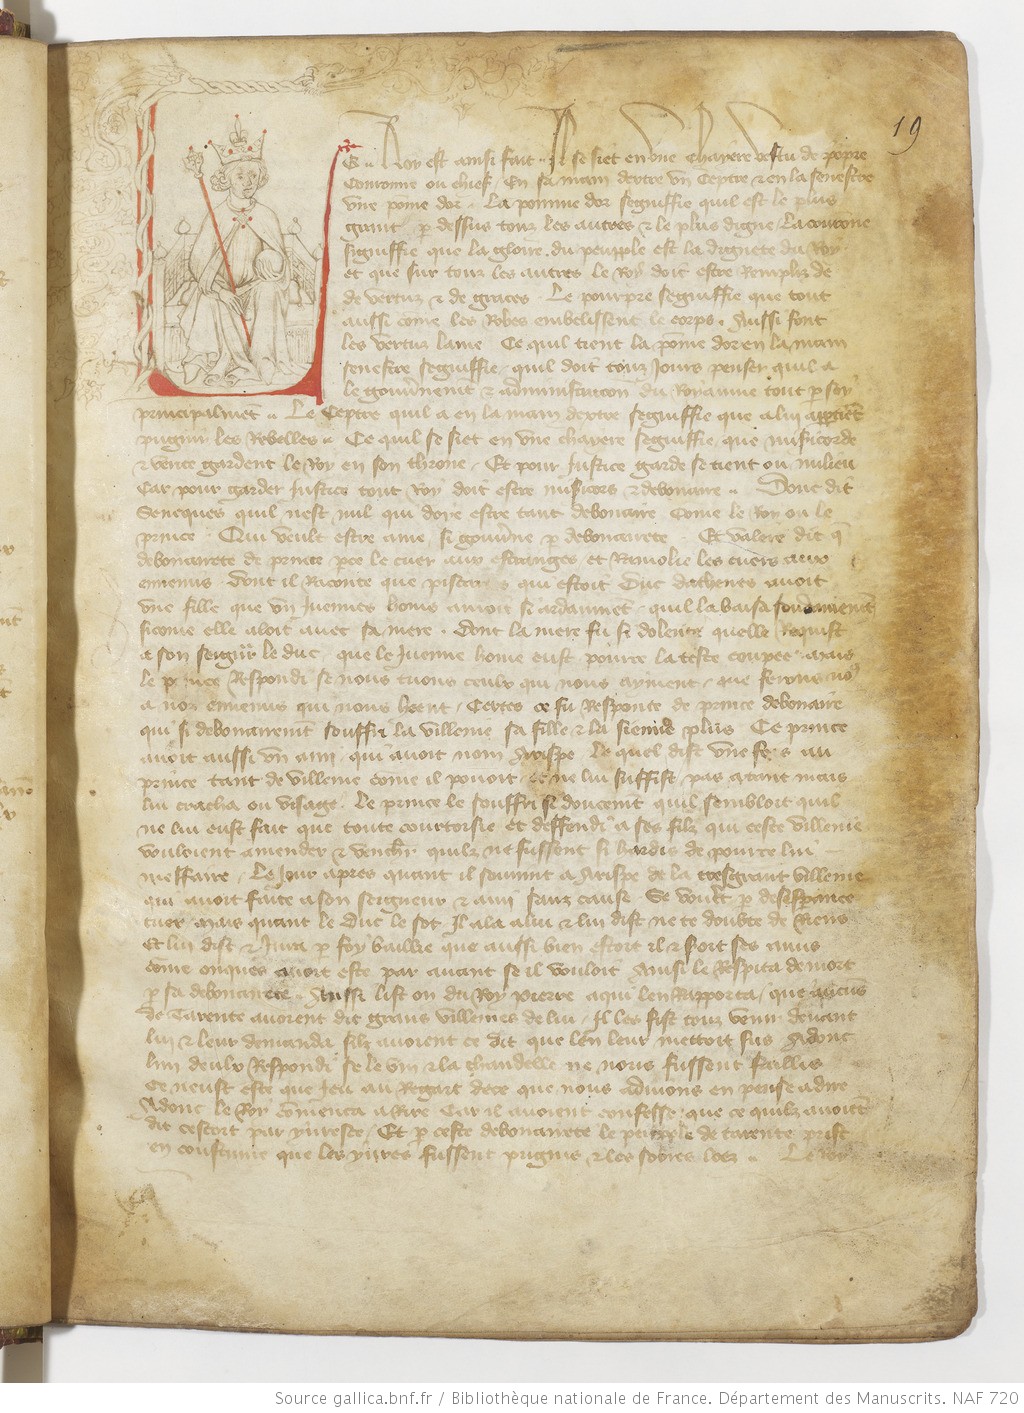 19
E Roy est ainsi fait Il se siet en une chayere vestu de popre
Couronne ou chief En sa main dextre un Ceptre & en la senestre
une pome dor La pomme dor segniffie quil est le plus
grant p dessus touz les autres & le plus digne La couronne
signiffie que la gloire du peupple est la dignete du Roy
et que sur touz les autres le Roy doit estre Remplis de
de vertuz & de graces Le pourpre segniffie que tout
aussi come les Robes embelissent le corps Aussi font
les vertuz lame Ce quil tient la pome dor en la main
senestre segniffie quil doit touz Jours penser quil a
le gouvnement & administracion du Royaume tout p soy
principalmet Le Ceptre quil a en la main dextre segniffie que a lui apptiet
pugnir les Rebelles Ce quil se siet en une chayere segniffie que misicorde
& verite gardent le Roy en son throne Et pour Justice garde se tient ou milieu
Car pour garder Justice tout Roy doit estre misicors & debonaire Donc dit
Seneques quil nest nul qui doye estre tant debonaire Come le Roy ou le
prince Qui veult estre ame si gouvne p debonairete Et valere dit q
debonairete de prince pce le cuer aux estranges et Remolie les cuers aux
ennemis Dont il Raconte que qui estoit Duc dathenes avoit
une fille que un Juennes homs amoit si ardanmet quil la baisa soudainement
sicome elle aloit avec sa mere Dont la mere fu si dolente quelle Requist
a son seigur le duc que le Juenne home eust pource la teste coupee mais
le prince Respondi se nous tuons ceulx qui nous ayment que ferons no9
a noz ennemis qui nous heent Certes ce fu Responce de prince debonaire
qui si debonairemt souffri la villenie sa fille & la sienne plus Ce prince
avoit aussi un ami qui avoit nom Arispe le quel dist une fois au
prince tant de villenie come il pouoit ce ne lui suffist pas atant mais
lui cracha ou visage Le prince le souffri si doucemt quil sembloit quil
ne lui eust fait que toute courtoisie et deffendi a ses filz qui ceste villenie
vouloient amender & vencher quilz ne fussent si hardis de pource lui
meffaire Le Jour apres quant il souvint a Arispe de la tresgrant villenie
qui avoit faite a son seigneur & ami sanz cause Se voult p desespance
tuer mais quant le Duc le sot Il ala a lui & lui dist ne te doubte de Riens
Et lui dist & Jura p foy baillie que aussi bien estoit il & soit ses amis
come onques avoit este par avant se il vouloit Ainsi le Respita de mort
p sa debonairete Aussi list on du Roy pierre a qui len Rapporta que aucus
de Tarente avoient dit grans villenies de lui Il les fist touz venir devant
lui & leur demanda silz avoient ce dit que len leur mettoit sus Adonc
lun deulx Respondi se le vin & la chandelle ne nous fussent faillis
Ce neust este que Jeu au Regart de ce que nous avions en pense a dire
Adonc le Roy comenca a Rire Car il avoient confesse que ce quilz avoiet
dit cestoit par yvresce Et p ceste debonairete le peupple de tarente prist
en coustume que les yvres fussent pugnis & les sobres loez Le Roy
Source gallica.bnf.fr / Bibliothèque nationale de France. Département des Manuscrits. NAF 720